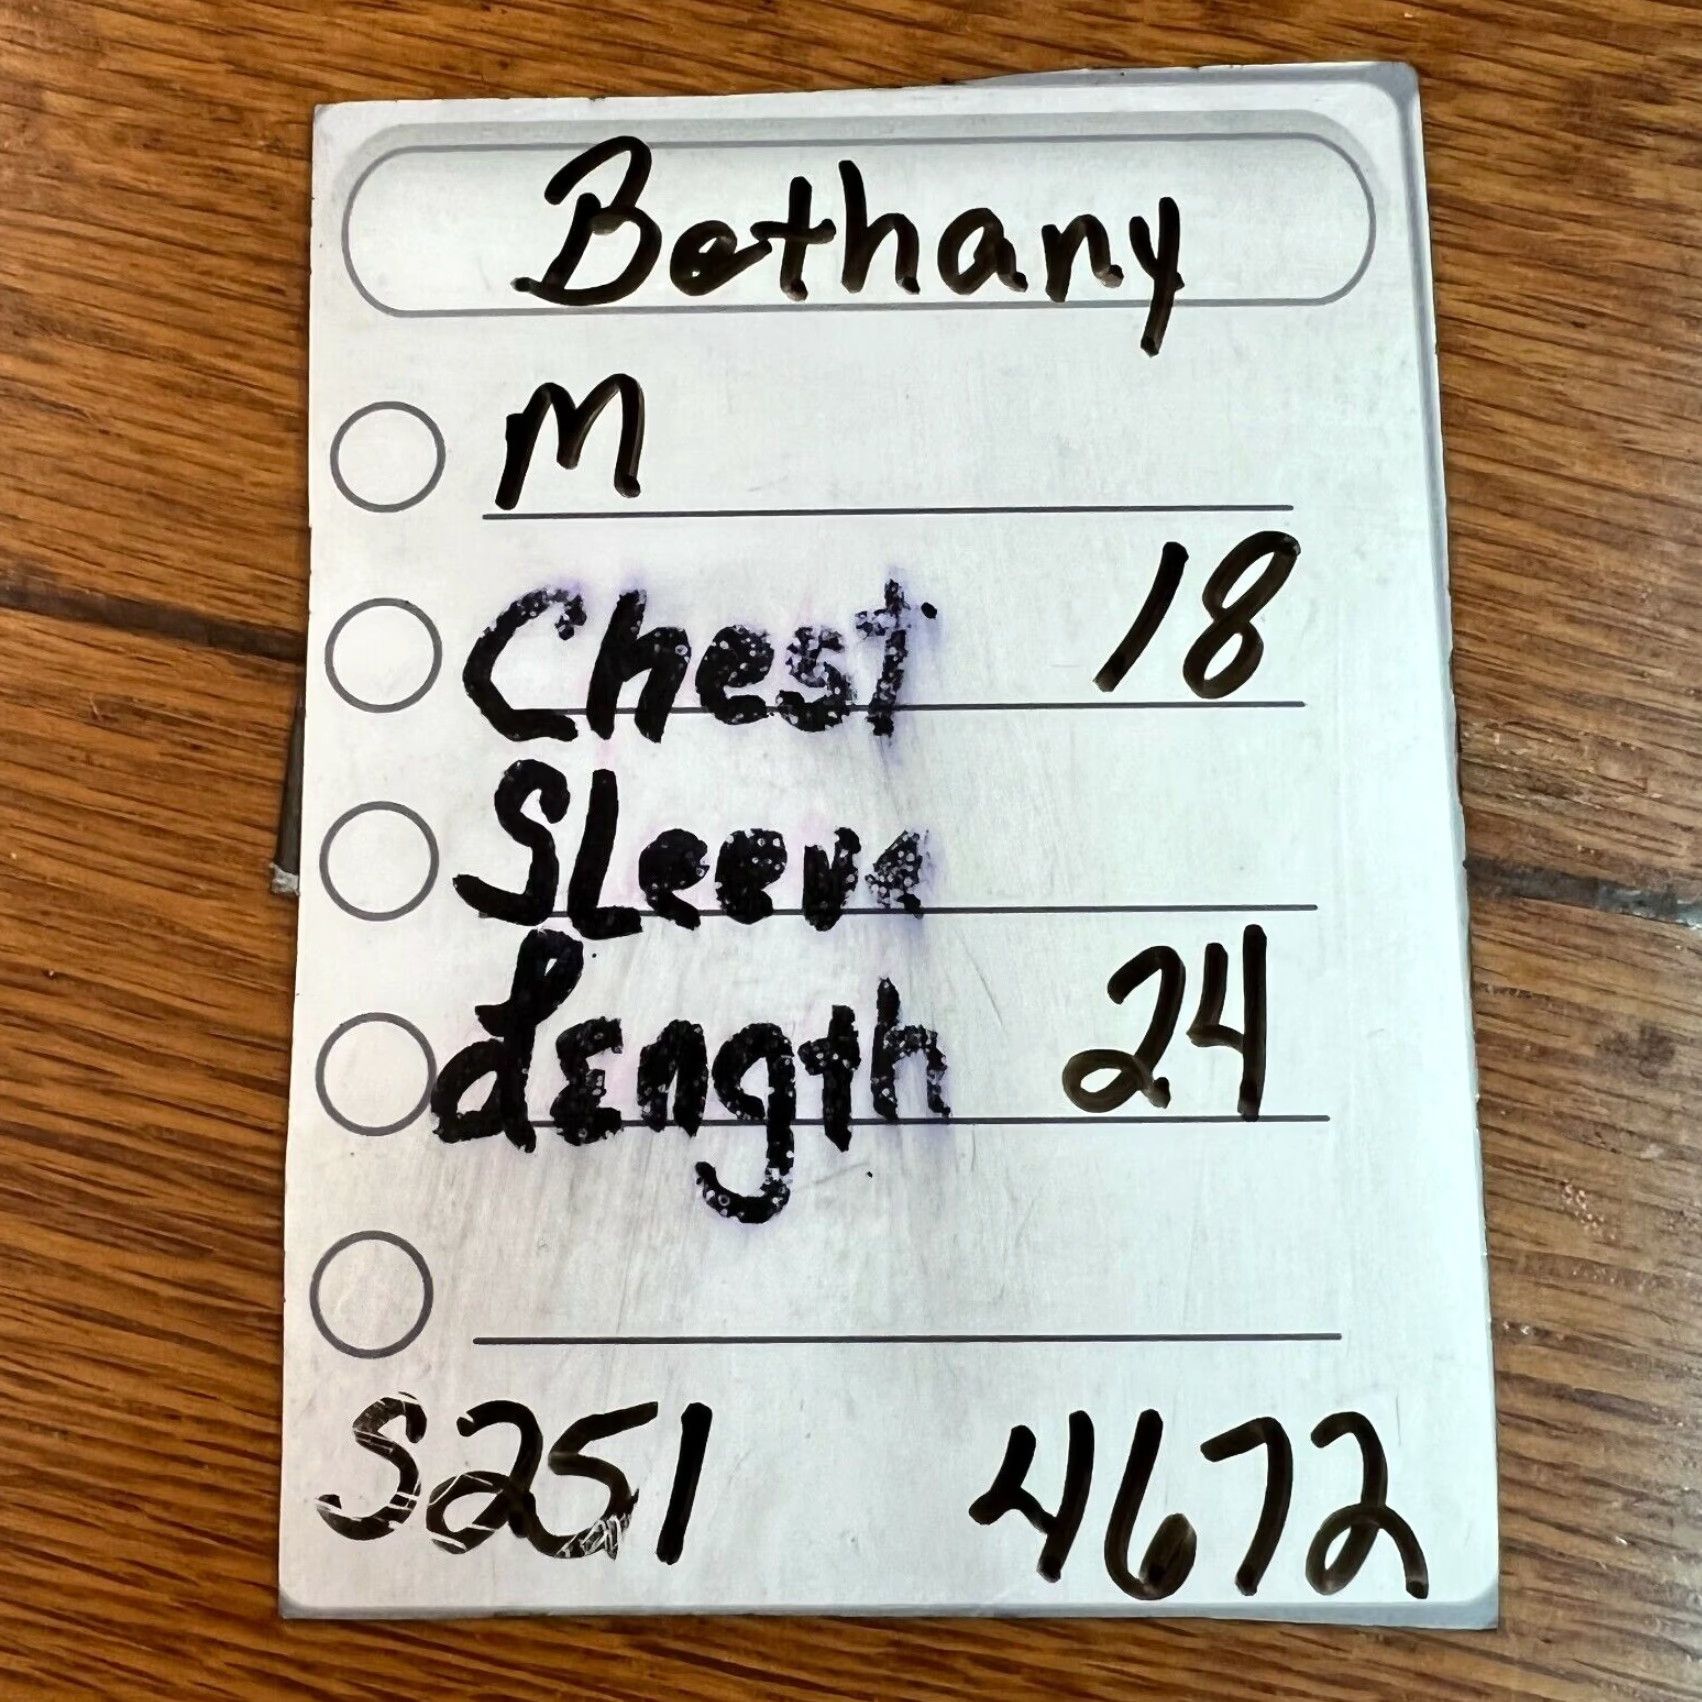 Bethany
M
Chest 18
Sleeve
Length 24
S251 4672